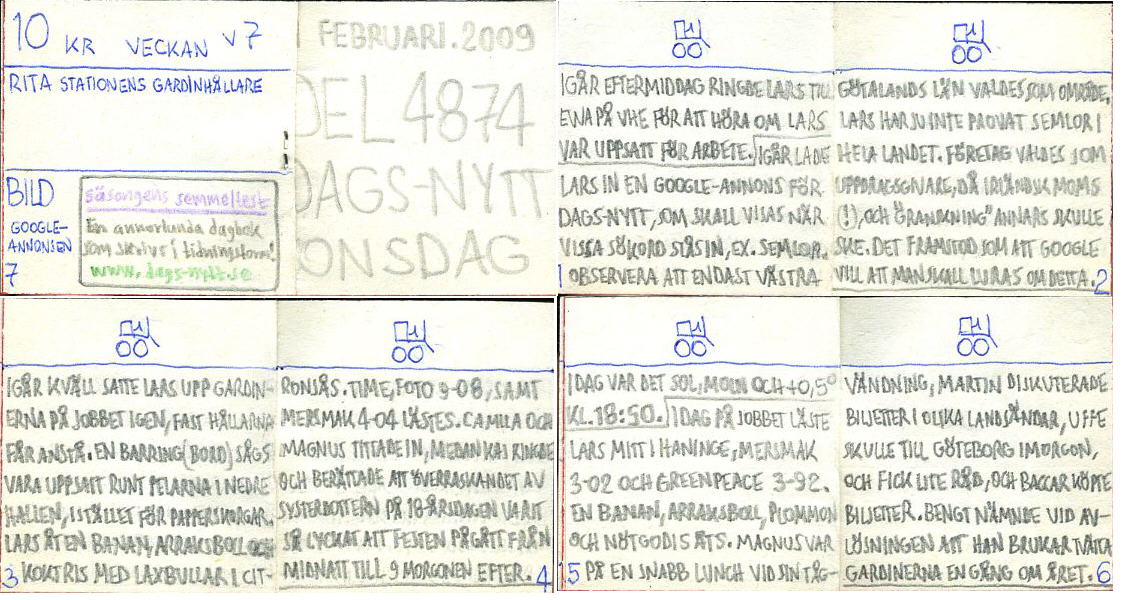 10 KR VECKAN V7
RITA STATIONENS GARDINHÅLLARE
BILD
GOOGLE-
ANNONSEN
7
Säsongens semmeltest
En annorlunda dagbok
som skrivs i tidningsform!
www.dags-nytt.se
FEBRUARI.2009
DEL 4874
DAGS-NYTT
ONSDAG
IGÅR EFTERMIDDAG RINGDE LARS TILL
EWA PÅ VHE FÖR ATT HÖRA OM LARS
VAR UPPSATT FÖR ARBETE. IGÅR LADE
LARS IN EN GOOGLE-ANNONS FÖR
DAGS-NYTT, OM SKALL VISAS NÄR
VISSA SÖKORD SLÅS IN, EX. SEMLOR.
1 OBSERVERA ATT ENDAST VÄSTRA
GÖTALANDS LÄN VALDES SOM OMRÅDE,
LARS HAR JU INTE PROVAT SEMLOR I
HELA LANDET. FÖRETAG VALDES SOM
UPPDRAGSGIVARE, DÅ IRLÄNDSK MOMS
(!), OCH "GRANSKNING" ANNARS SKULLE
SKE. DET FRAMSTOD SOM ATT GOOGLE
VILL ATT MAN SKALL LURAS OM DETTA. 2
IGÅR KVÄLL SATTE LARS UPP GARDIN-
ERNA PÅ JOBBET IGEN, FAST HÅLLARNA
FÅR ANSTÅ. EN BARRING (BORD) SÅGS
VARA UPPSATT RUNT PELARNA I NEDRE
HALLEN, ISTÄLLET FÖR PAPPERSKORGAR.
LARS ÅT EN BANAN, ARRAKSBOLL OCH
3 KOKT RIS MED LAXBULLAR I CIT-
RONSÅS. TIME, FOTO 9-08, SAMT
MERSMAK 4-04 LÄSTES. CAMILA OCH
MAGNUS TITTADE IN, MEDAN KAI RINGDE
OCH BERÄTTADE ATT ÖVERRASKANDET AV
SYSTERDOTTERN PÅ 18-ÅRSDAGEN VARIT
SÅ LYCKAT ATT FESTEN PÅGÅTT FRÅN
MIDNATT TILL 9 MORGONEN EFTER. 4
IDAG VAR DET SOL, MOLN OCH +0,5°
KL. 18:50. IDAG PÅ JOBBET LÄSTE
LARS MITT I HANINGE, MERSMAK
3-02 OCH GREENPEACE 3-92.
EN BANAN, ARRAKSBOLL, PLOMMON
OCH NÖTGODIS ÅTS. MAGNUS VAR
5 PÅ EN SNABB LUNCH VID SIN TÅG-
VÄNDNING, MARTIN DISKUTERADE
BILJETTER I OLIKA LANDSÄNDAR, UFFE
SKULLE TILL GÖTEBORG IMORGON,
OCH FICK LITE RÅD, OCH BACCAR KÖPTE
BILJETTER. BENGT NÄMNDE VID AV-
LÖSNINGEN ATT HAN BRUKAR TVÄTTA
GARDINERNA EN GÅNG OM ÅRET. 6